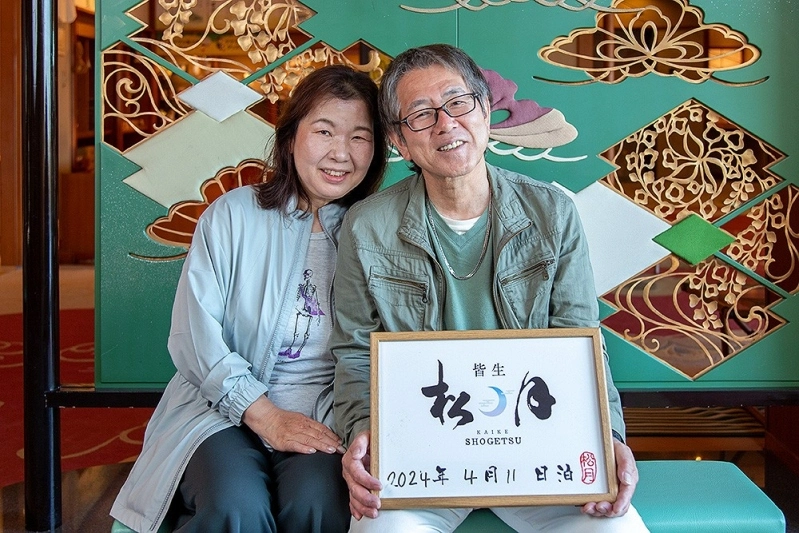 皆生
松月
KAIKE
SHOGETSU
2024年 4月11日泊
松月